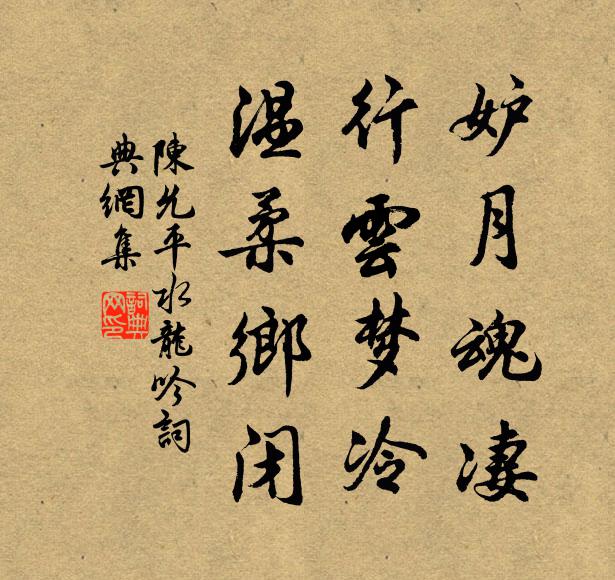 妒月魂凄
行雲梦冷
温柔鄉闭
陳允平水龍吟詞
典網集
詞典網印